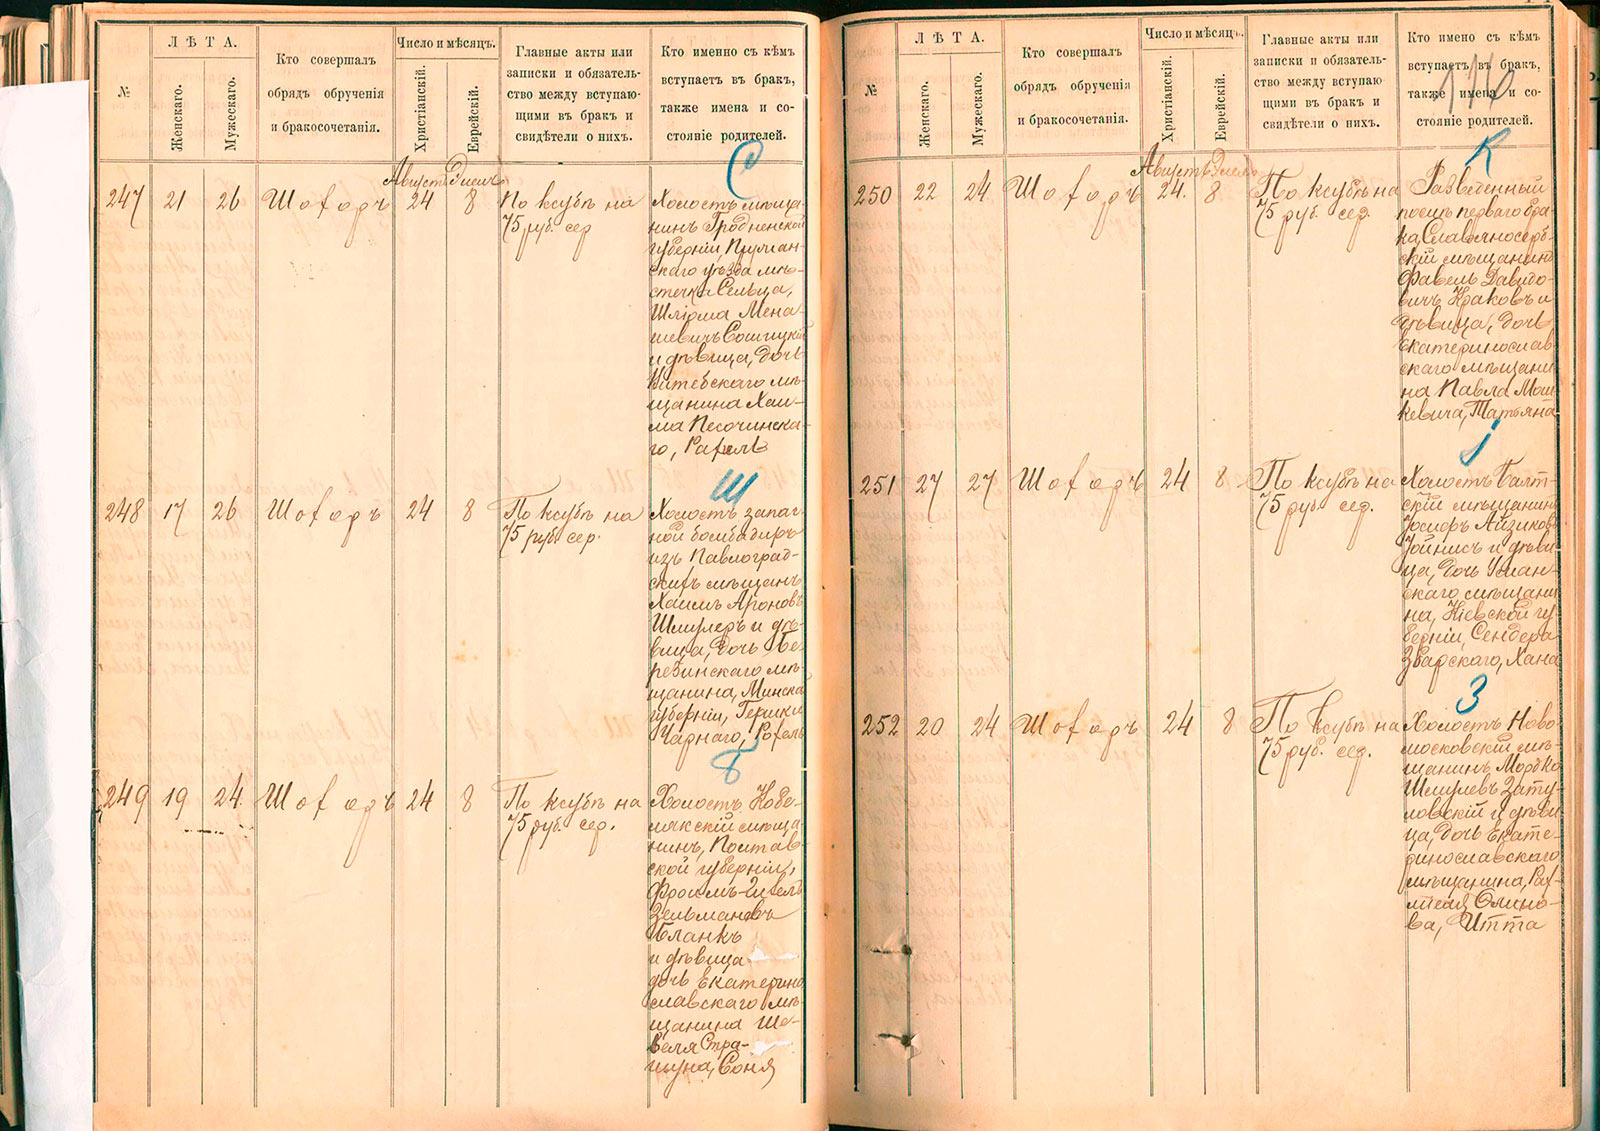 ЛѢТА.
Число и мѣсяцъ.
№
Женскаго.
Мужескаго.
Кто совершалъ
обрядъ обрученія
и бракосочетанія.
Христіанскій.
Еврейскій.
Главные акты или
записки и обязатель-
ство между вступаю-
щими въ бракъ и
свидѣтели о нихъ.
Кто именно съ кѣмъ
вступаетъ въ бракъ,
также имена и со-
стояніе родителей.
Августъ
С
247 21 26 Шохоръ 24 8
По ксубѣ на
75 руб. сер
Холостъ мѣща-
нинъ Гродненской
губерніи, Пружан-
скаго уѣзда мѣ-
стечка Сельца,
Шліома Мена-
шевичъ
и дѣвица, дочь
Витебскаго мѣ-
щанина Хаи-
ма Песочинска-
го, Рахель
Ш
248 17 26 Шохоръ 24 8
По ксубѣ на
75 руб. сер.
Холостъ запас-
ной бомбадиръ
изъ Павлоград-
скихъ мѣщанъ
Хаимъ Ароновъ
Шмулеръ и дѣ-
вица, дочь Бе-
резинскаго мѣ-
щанина, Минска
губерніи, Гершки
Чарнаго, Рохель
Б
249 19 24. Шохоръ 24 8
По ксубѣ на
75 руб. сер.
Холостъ Кобе-
лякскій мѣща-
нинъ, Полтав-
ской губерніи,
Фроимъ-Ицель
Зельмановъ
Бланкъ
и дѣвица
дочь Екатерино
славскаго мѣ-
щанина Ше-
веля Стра-
шуна, Соня
ЛѢТА.
Число и мѣсяцъ.
№
Женскаго.
Мужескаго.
Кто совершалъ
обрядъ обрученія
и бракосочетанія.
Христіанскій.
Еврейскій.
Главные акты или
записки и обязатель-
ство между вступаю-
щими въ бракъ и
свидѣтели о нихъ.
Кто имено съ кѣмъ
вступаетъ въ бракъ,
также имена и со-
стояніе родителей.
116
Августъ
К
250 22 24 Шохоръ 24. 8
По ксубѣ на
75 руб. сер.
Разведенный
послѣ перваго бра-
ка, Славяносерб-
скій мѣщанинъ
Фавель Давидо-
вичъ Краковъ и
дѣвица, дочь
Екатеринослав-
скаго мѣщани
на Павла Мош
кевича, Татьяна
І
251 27 27 Шохоръ 24 8
По ксубѣ на
75 руб. сер.
Холостъ Балт-
скій мѣщанинъ
Іосифъ Айзиковъ
Іойнисъ и дѣви
ца, дочь Уман-
скаго мѣщани
на, Кіевской гу
берніи, Сендера
Зварскаго, Хана
З
252 20 24 Шохоръ 24 8
По ксубѣ на
75 руб. сер.
Холостъ Ново-
московскій мѣ-
щанинъ Мордко
Шмулевъ Зату
ловскій и дѣви
ца, дочь Екате-
ринославскаго
мѣщанина, Раф-
ва, Итта